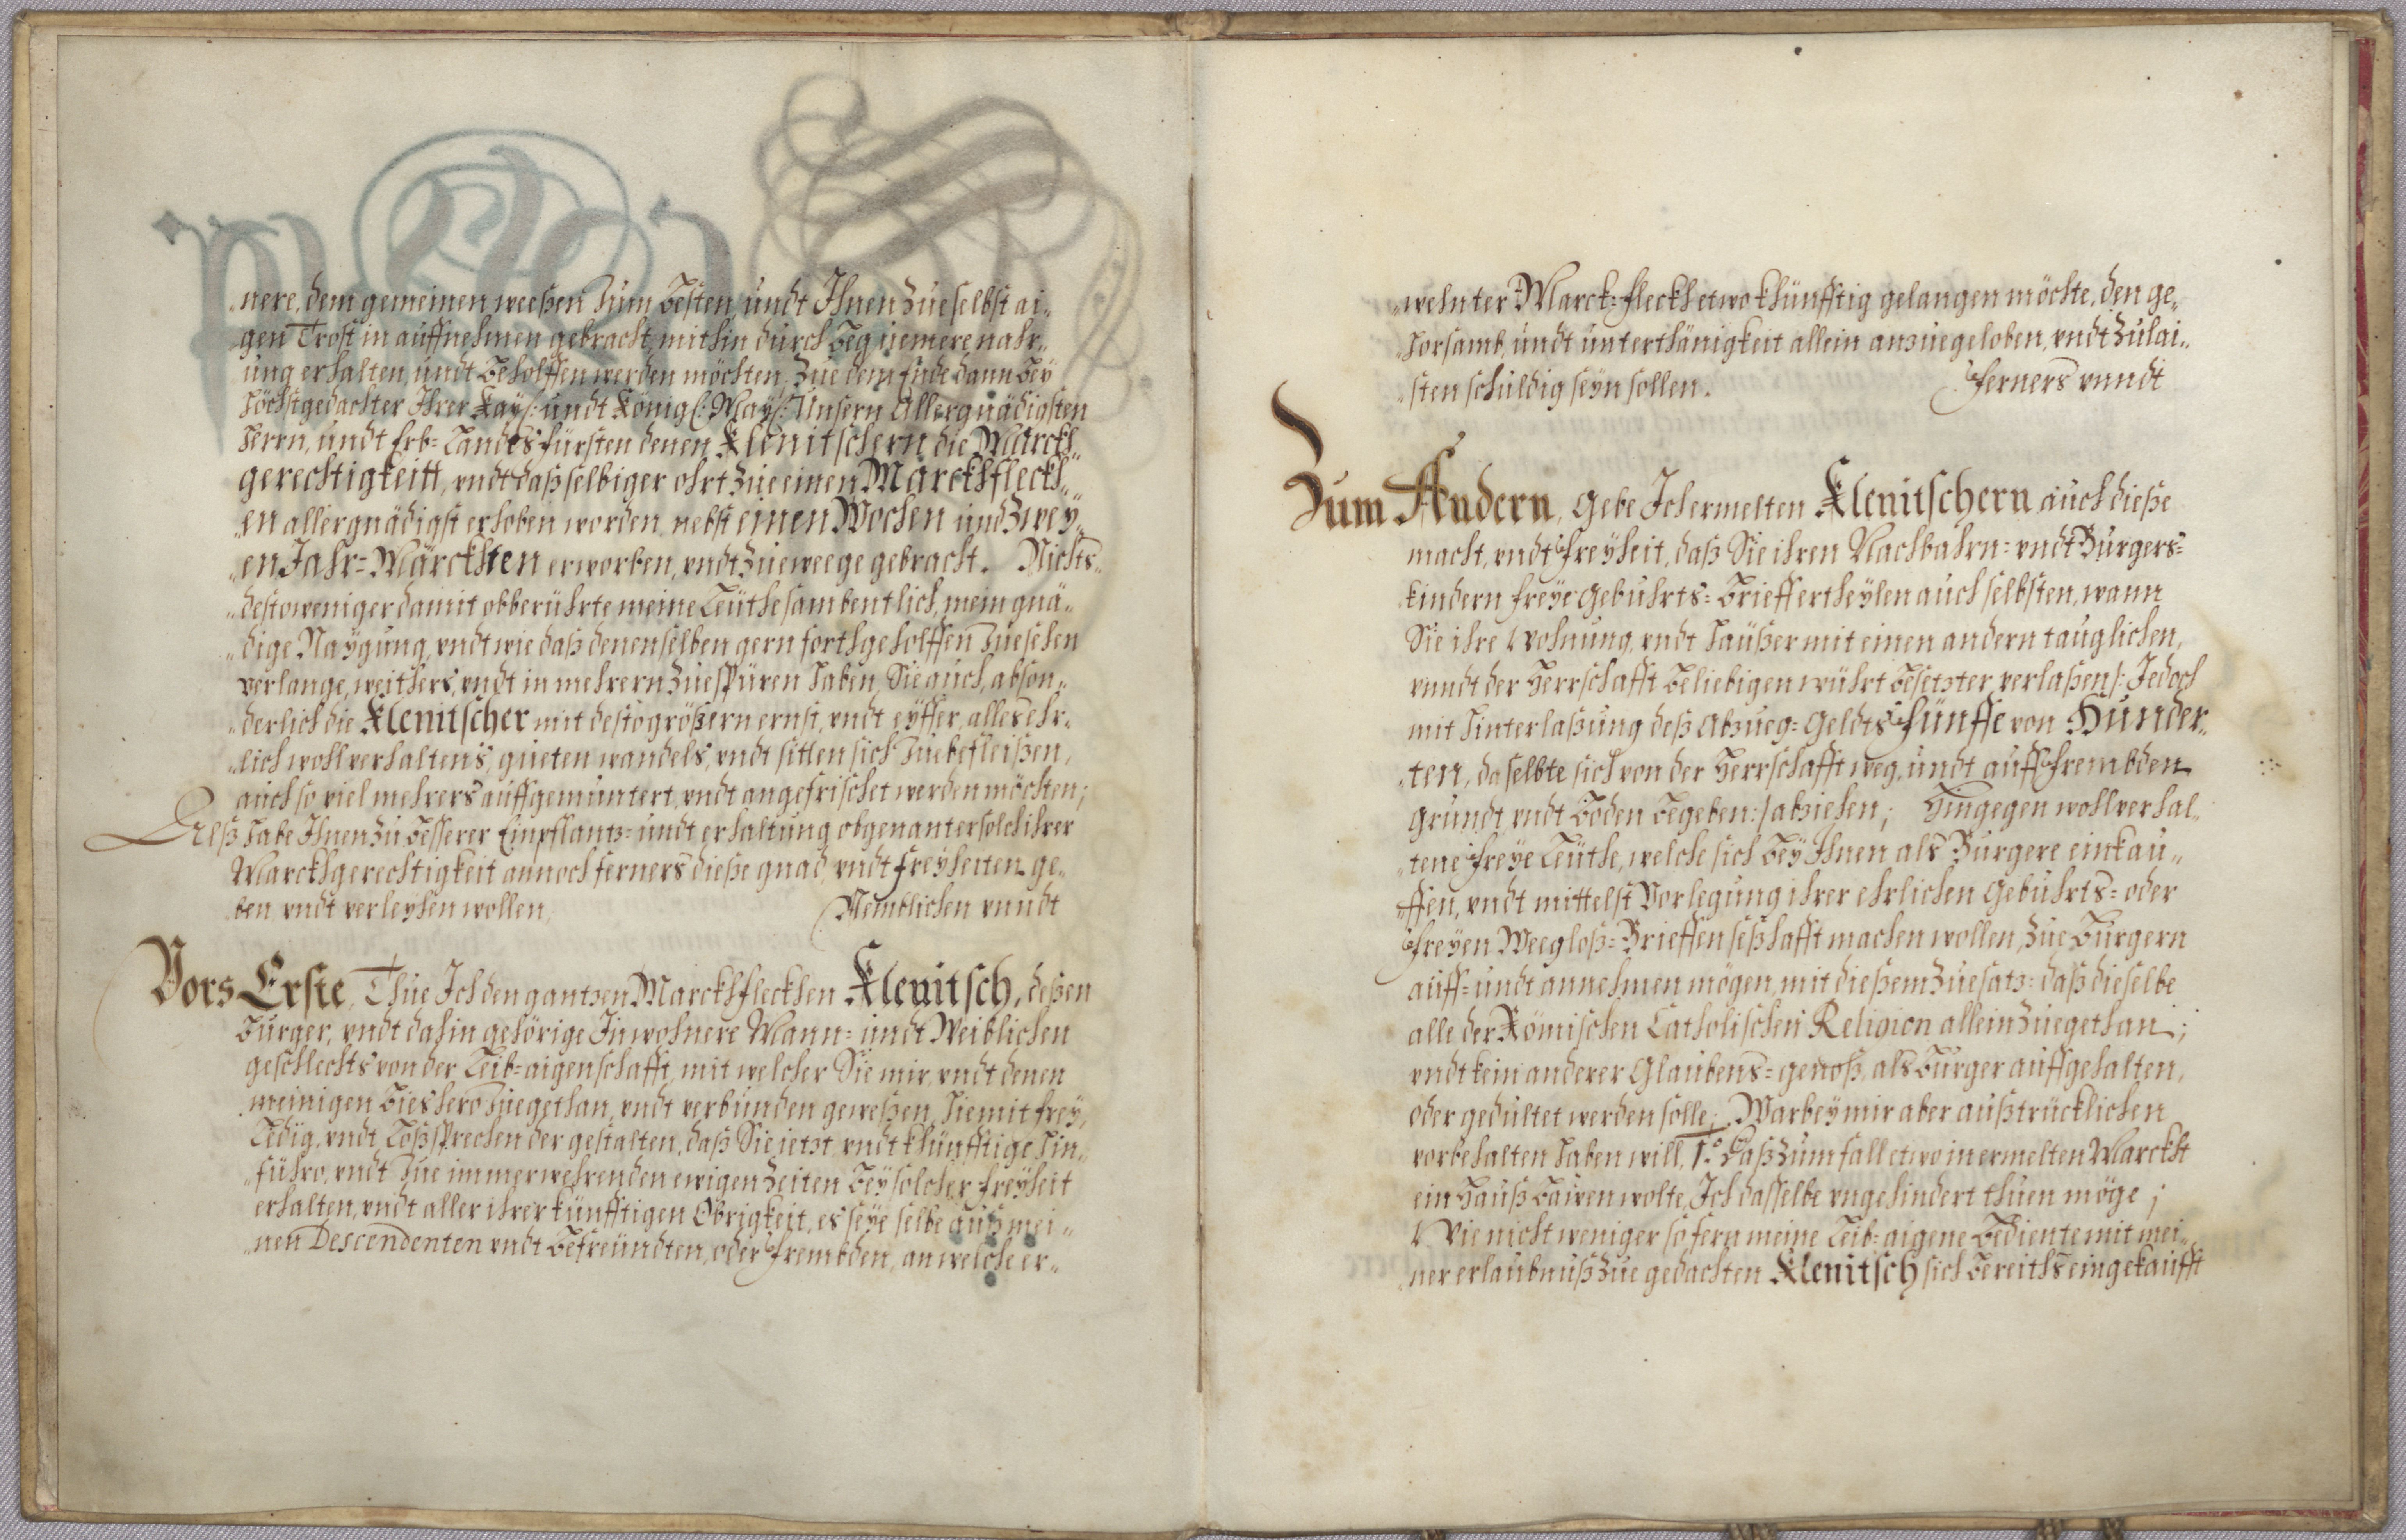 „nere, dem gemeinen weeßen zum Besten, undt Ihnen zue selbst ai„
gen Trost in auffnehmen gebracht, mithin durch Beqüemere nahr„
ung erhalten, undt Beholffen werden möchten. Zue dem Ende dann Bey
höchstgedachter Ihrer Kayß: undt Königl: Mayß: Unsern Allergnädigsten
Herrn, undt Erb=Landts Fürsten denen Klenitschern die Marckh„
gerechtigkeitt, undt daß selbiger ohrt zue einen Marckhfleckh„
„en allergnädigst erhoben worden, nebst einen Wochen und Zwey„
„en Jahr=Märckhten erworben, vndt zueweege gebracht. Nichts„
„destoweniger damit obberührte meine Leüthe sambentlich, mein gnä„
„dige Naygung, vndt wie daß denenselben gern forthgeholffen zuesehen
verlange, weithers, vndt in mehrern zuespüren haben, Sie auch, abson„
„derlich die Klenitscher mit desto größern ernst, vndt eyffer, alles ehr„
„lich wohl verhaltens, gueten wandels, vndt sitten sich zuebefleißen,
auch so viel mehrers auffgemuntert, vndt angefrischet werden möchten;
Alß habe Ihnen zu besserer Einpflantz= undt erhaltung obgenanter solch ihrer
Marckhgerechtigkeit annoch ferners dieße gnad, vndt freyheiten ge„
ben vndt verleyhen wollen. Nemblichen vnndt
Vors Erste, Thue Ich den gantzen Marckhfleckhen Klenitsch, deßen
Burger, vndt dahin gehörige Inwohnere Mann= undt Weiblichen
geschlechts von der Leib=aigenschafft, mit welcher Sie mir, vndt denen
meinigen Bieshero zuegethan, vndt verbunden geweßen, hiemit frey,
Ledig, vndt Loßsprechen der gestalten, daß Sie ietzt, vndt khünfftige hin„
„führo, vndt zue immerwehrenden ewigen Zeiten Bey solcher freyheit
erhalten, vndt aller ihrer künfftigen Obrigkeit, es seye selbe auß mei„
„nen Descendenten vndt Befreündten, oder Frembden, an welche er„
„wehnter Marck=fleckh etwo khünfftig gelangen möchte, den ge„
„horsamb, undt unterthänigkeit allein anzuegeloben, vndt Zulai„
„sten schuldig seyn sollen. Ferners vnndt
Zum Andern, Gebe Ich ermelten Klenitschern auch dieße
macht, vndt Freyheit, daß Sie ihren Nachbahrn= vndt Burgers=
kindern freye Gebuhrts=Brieff ertheylen auch selbsten, wann
Sie ihre Wohnung, vndt haüßer mit einen andern tauglichen,
vnndt der Herrschafft Beliebigen würth Besetzter verlaßen /: Jedoch
mit hinterlaßung deß Abzueg=Geldts Fünffe von Hunder„
„ten, da selbte sich von der Herrschafft weg, undt auff Frembden
grundt, vndt Boden Begeben :/ abziehen; Hingegen wohlverhal„
„tene Freye Leüthe, welche sich Bey Ihnen als Burgere einkau„
„ffen, vndt mittelst Vorlegung ihrer ehrlichen Gebuhrts= oder
Freyen Weegloß=Brieffen seßhafft machen wollen, Zue Burgern
auff= undt annehmen mögen, mit dießem Zuesatz: daß dieselbe
alle der Römischen Catholischen Religion allein Zuegethan;
vndt kein anderer Glaubens=genoß, als Burger auffgehalten,
oder gedultet werden solle; Warbey mir aber außtrücklichen
vorbehalten haben will. 1.º Daß zum fall etwo in ermelten Marckht
ein Hauß Bauen wolte, Ich dasselbe vngehindert thuen möge;
Wie nicht weniger so fern meine Leib=aigene Bediente mit mei„
ner erlaubnuß Zue gedachten Klenitsch sich Bereiths eingekaufft